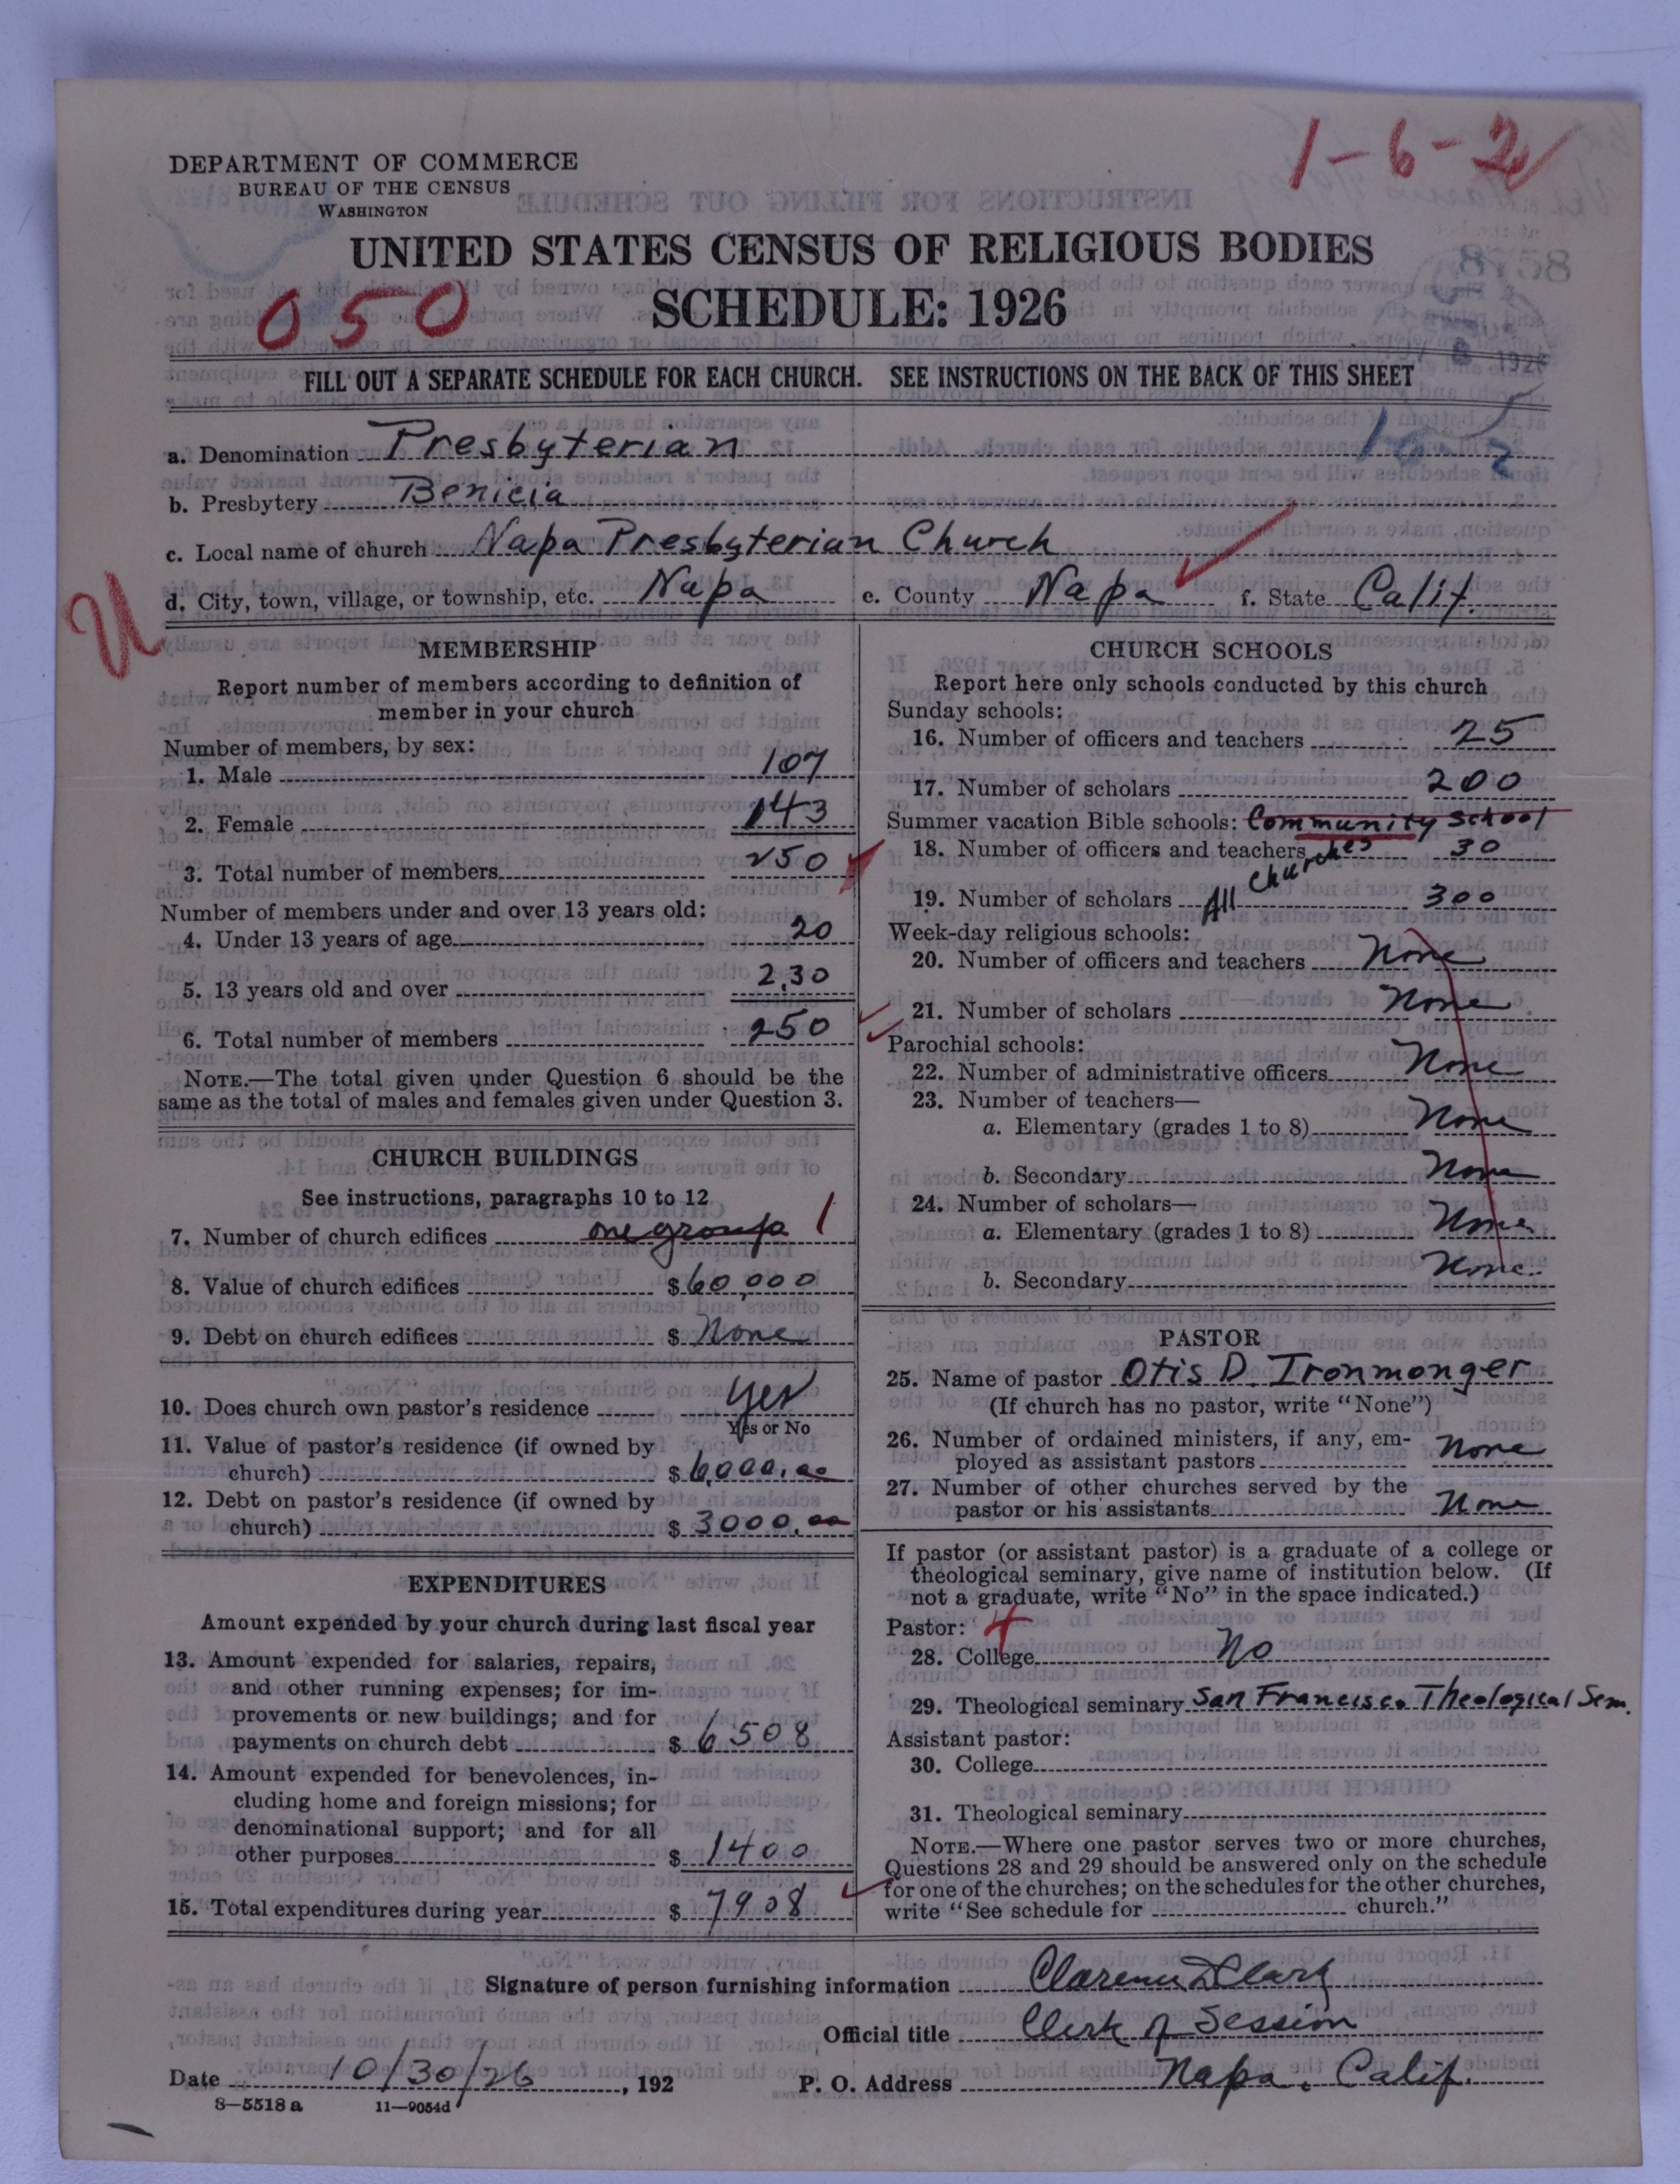 1-6-2
DEPARTMENT OF COMMERCE
BUREAU OF THE CENSUS
WASHINGTON
UNITED STATES CENSUS OF RELIGIOUS BODIES
050
SCHEDULE: 1926
FILL OUT A SEPARATE SCHEDULE FOR EACH CHURCH. SEE INSTRUCTIONS ON THE BACK OF THIS SHEET
a. Denomination Presbyterian
b. Presbytery Benicia
c. Local name of church Napa Presbyterian Church
d. City, town, village, or township, etc. Napa e. County Napa f. State Calif.
U
MEMBERSHIP
Report number of members according to definition of
member in your church
Number of members, by sex:
1. Male 107
2. Female 143
3. Total number of members 250
Number of members under and over 13 years old:
4. Under 13 years of age 20
5. 13 years old and over 230
6. Total number of members 250
NOTE.—The total given under Question 6 should be the
same as the total of males and females given under Question 3.
CHURCH BUILDINGS
See instructions, paragraphs 10 to 12
7. Number of church edifices one group 1
8. Value of church edifices $60,000
9. Debt on church edifices $ None
10. Does church own pastor's residence Yes
Yes or No
11. Value of pastor's residence (if owned by
church) $6000.00
12. Debt on pastor's residence (if owned by
church) $3000.00
EXPENDITURES
Amount expended by your church during last fiscal year
13. Amount expended for salaries, repairs,
and other running expenses; for im-
provements or new buildings; and for
payments on church debt $6508
14. Amount expended for benevolences, in-
cluding home and foreign missions; for
denominational support; and for all
other purposes $1400
15. Total expenditures during year $7908
CHURCH SCHOOLS
Report here only schools conducted by this church
Sunday schools:
16. Number of officers and teachers 25
17. Number of scholars 200
Summer vacation Bible schools: Community School
18. Number of officers and teachers 30
19. Number of scholars All Churches 300
Week-day religious schools:
20. Number of officers and teachers None
21. Number of scholars None
Parochial schools:
22. Number of administrative officers None
23. Number of teachers—
a. Elementary (grades 1 to 8) None
b. Secondary None
24. Number of scholars—
a. Elementary (grades 1 to 8) None
b. Secondary None
PASTOR
25. Name of pastor Otis D. Ironmonger
(If church has no pastor, write "None")
26. Number of ordained ministers, if any, em-
ployed as assistant pastors None
27. Number of other churches served by the
pastor or his assistants None
If pastor (or assistant pastor) is a graduate of a college or
theological seminary, give name of institution below. (If
not a graduate, write "No" in the space indicated.)
Pastor: 4
28. College No
29. Theological seminary San Francisco Theological Sem.
Assistant pastor:
30. College
31. Theological seminary
NOTE.—Where one pastor serves two or more churches,
Questions 28 and 29 should be answered only on the schedule
for one of the churches; on the schedules for the other churches,
write "See schedule for church."
Signature of person furnishing information Clarence D Clark
Official title Clerk of Session
Date 10/30/26, 192 P. O. Address Napa, Calif.
8-5518 a 11-9054d